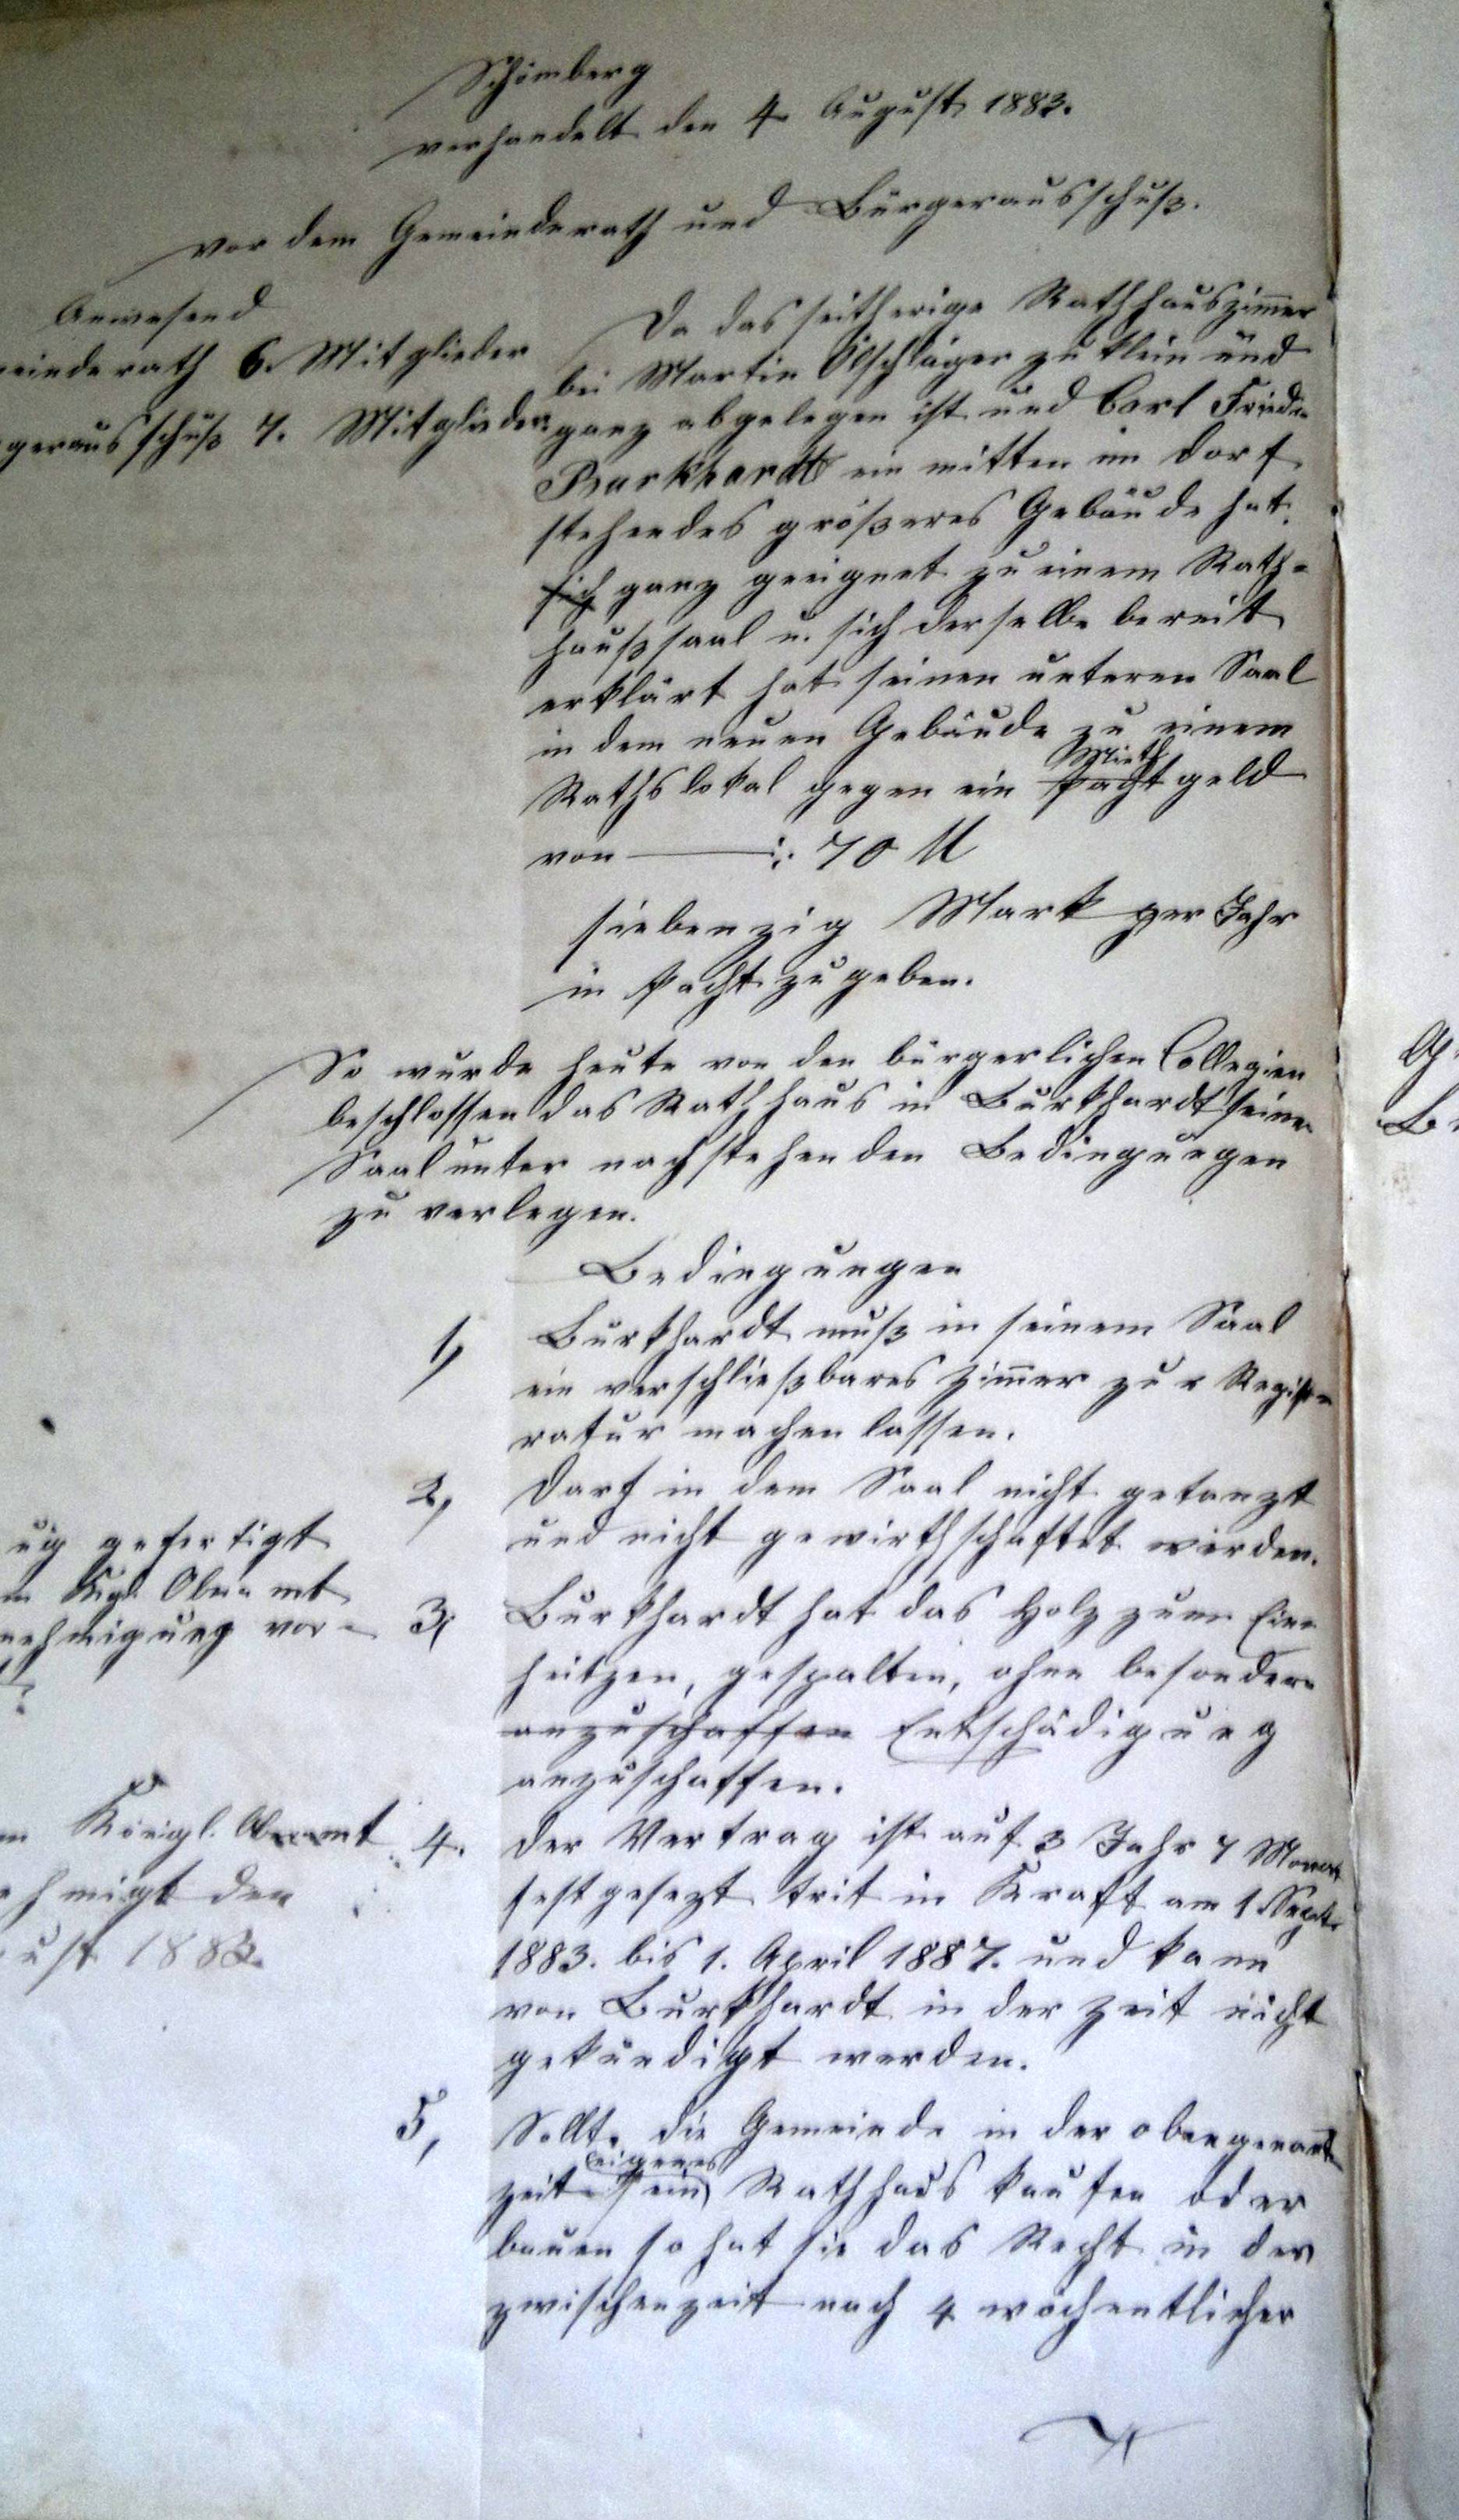 Schömberg
verhandelt den 4 August 1883.
vor dem Gemeinderath und Bürgerausschuß.
Anwesend
meinderath 6. Mitglieder
gerausschuß 7. Mitglieder.
Da das seitherige Rathhauszimer
bei Martin Ölschläger zu klein und
ganz abgelegen ist und Carl Friedr.
Burkhardt ein mitten im Dorf
stehendes größeres Gebäude hat.
sich ganz geeignet zu einem Rath-
haußsaal u. sich derselbe bereit
erklärt hat seinen unteren Saal
in dem neuen Gebäude zu einem
Mieth
Rathslokal gegen ein Pachtgeld
von —— : 70 M
siebenzig Mark per Jahr
in Pacht zu geben.
So wurde heute von den bürgerlichen Collegien
beschlossen das Rathhaus in Burkhardt seinen
Saal unter nachstehenden Bedingungen
zu verlegen.
Bedingungen
1, Burkhardt muß in seinem Saal
ein verschließbares Zimer zur Regist-
ratur machen lassen.
2, Darf in dem Saal nicht getanzt
und nicht gewirthschaftet werden.
3, Burkhardt hat das Holz zum Ein-
heitzen, gespalten, ohne besondere
anzuschaffen Entschädigung
anzuschaffen.
4. Der Vertrag ist auf 3 Jahr 7 Monat
festgesezt trit in Kraft am 1 Septr
1883. bis 1. April 1887. und kann
von Burkhardt in der Zeit nicht
gekündigt werden.
5, Sollte die Gemeinde in der obengenant
eigenes
Zeit ein Rathhaus kaufen oder
bauen so hat sie das Recht in der
Zwischenzeit nach 4 wöchentlicher
ug gefertigt
m Kgl. Oberamt
nehmigung vor-
m Königl. Oberamt
ehmigt den
ust 1883.